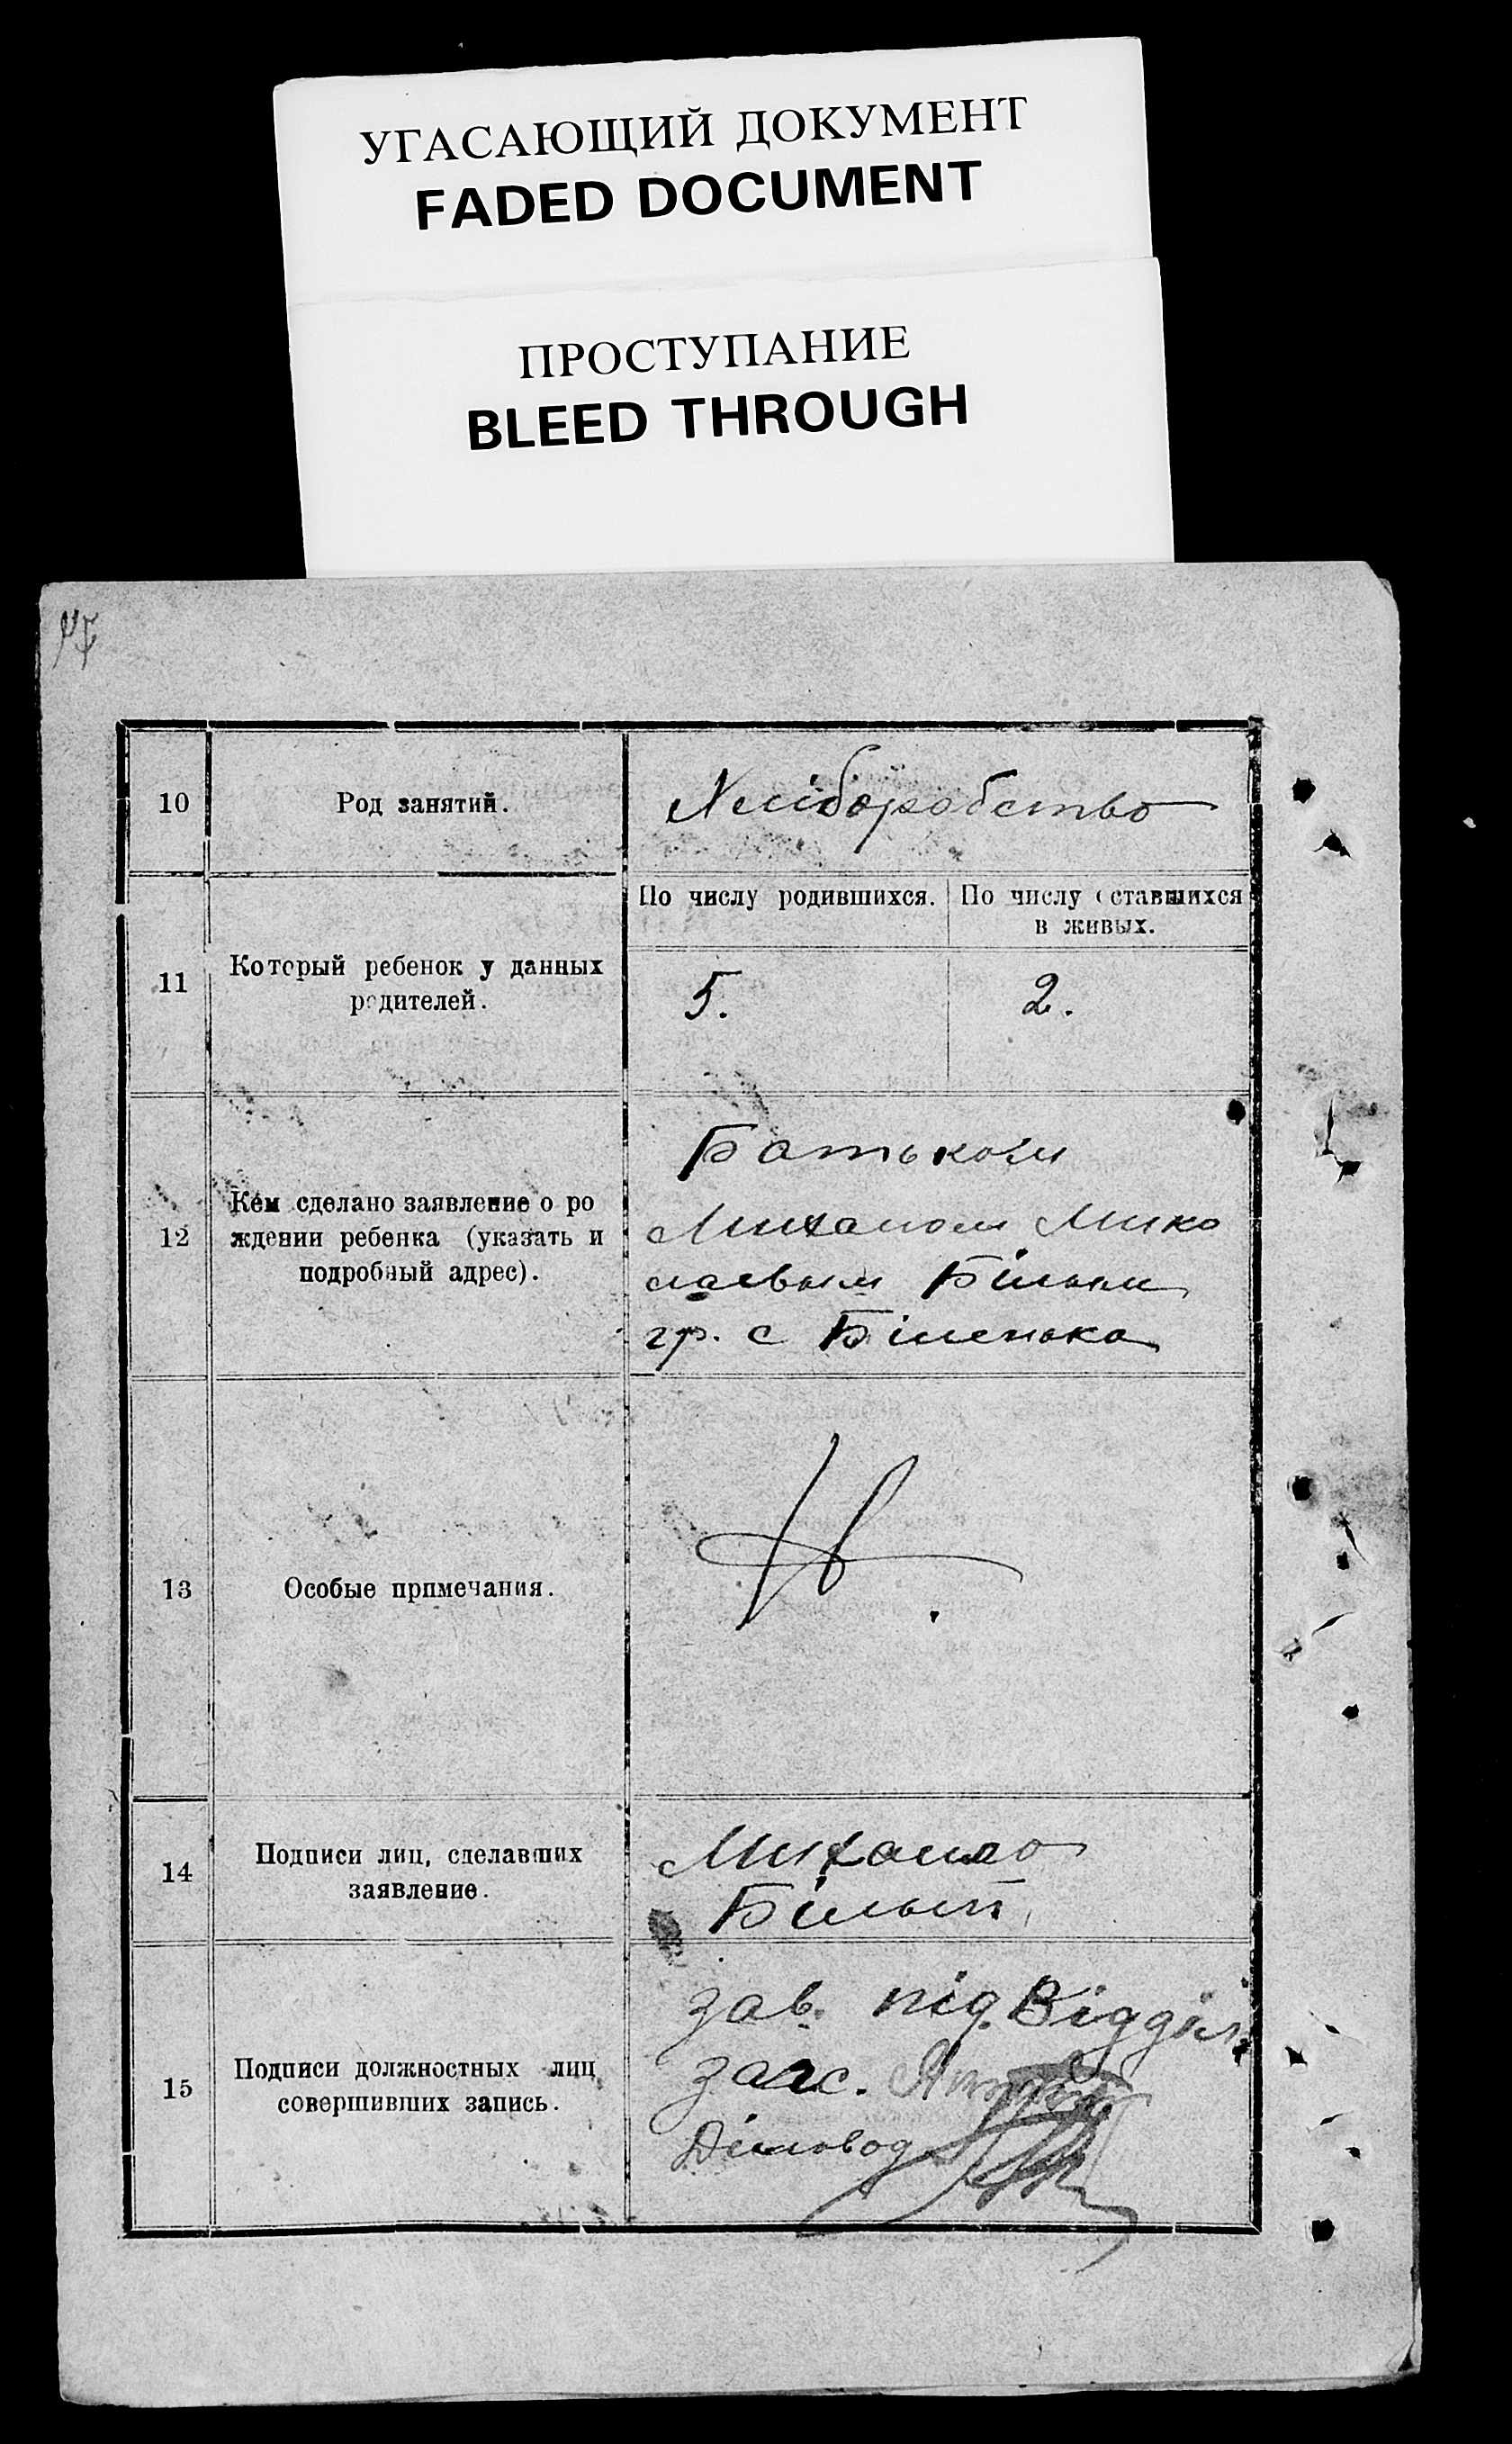 УГАСАЮЩИЙ ДОКУМЕНТ
FADED DOCUMENT
ПРОСТУПАНИЕ
BLEED THROUGH
10
Род занятий.
Хліборобство
11
Который ребенок у данных
родителей.
По числу родившихся.
По числу оставшихся
в живых.
5.
2.
12
Кем сделано заявление о ро
ждении ребенка (указать и
подробный адрес).
Батьком
Михалом Мико
лаевым Білым
гр. с Біленька
13
Особые примечания.
14
Подписи лиц, сделавших
заявление.
Михаило
Білый
15
Подписи должностных лиц
совершивших запись.
Зав. під. Відділ.
загс.
Діловод